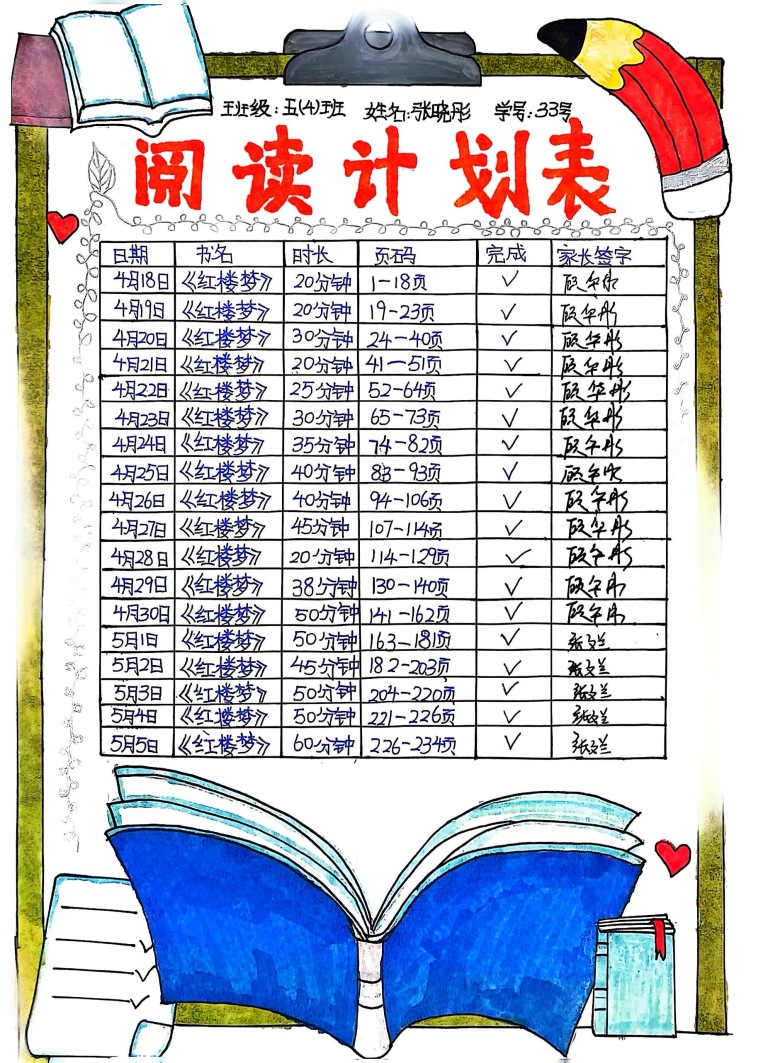 班级:五(4)班 姓名:张晓彤 学号:33号
阅读计划表
日期 书名 时长 页码 完成 家长签字
4月18日 《红楼梦》 20分钟 1-18页 ✓
4月19日 《红楼梦》 20分钟 19-23页 ✓
4月20日 《红楼梦》 30分钟 24-40页 ✓
4月21日 《红楼梦》 20分钟 41-51页 ✓
4月22日 《红楼梦》 25分钟 52-64页 ✓
4月23日 《红楼梦》 30分钟 65-73页 ✓
4月24日 《红楼梦》 35分钟 74-82页 ✓
4月25日 《红楼梦》 40分钟 83-93页 ✓
4月26日 《红楼梦》 40分钟 94-106页 ✓
4月27日 《红楼梦》 45分钟 107-114页 ✓
4月28日 《红楼梦》 20分钟 114-129页 ✓
4月29日 《红楼梦》 38分钟 130-140页 ✓
4月30日 《红楼梦》 50分钟 141-162页 ✓
5月1日 《红楼梦》 50分钟 163-181页 ✓
5月2日 《红楼梦》 45分钟 182-203页 ✓
5月3日 《红楼梦》 50分钟 204-220页 ✓
5月4日 《红楼梦》 50分钟 221-226页 ✓
5月5日 《红楼梦》 60分钟 226-234页 ✓